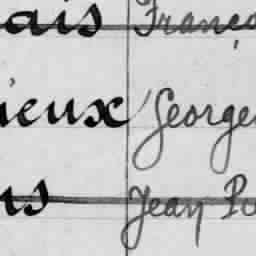 ais Franço
ieux George
ns Jean Pi